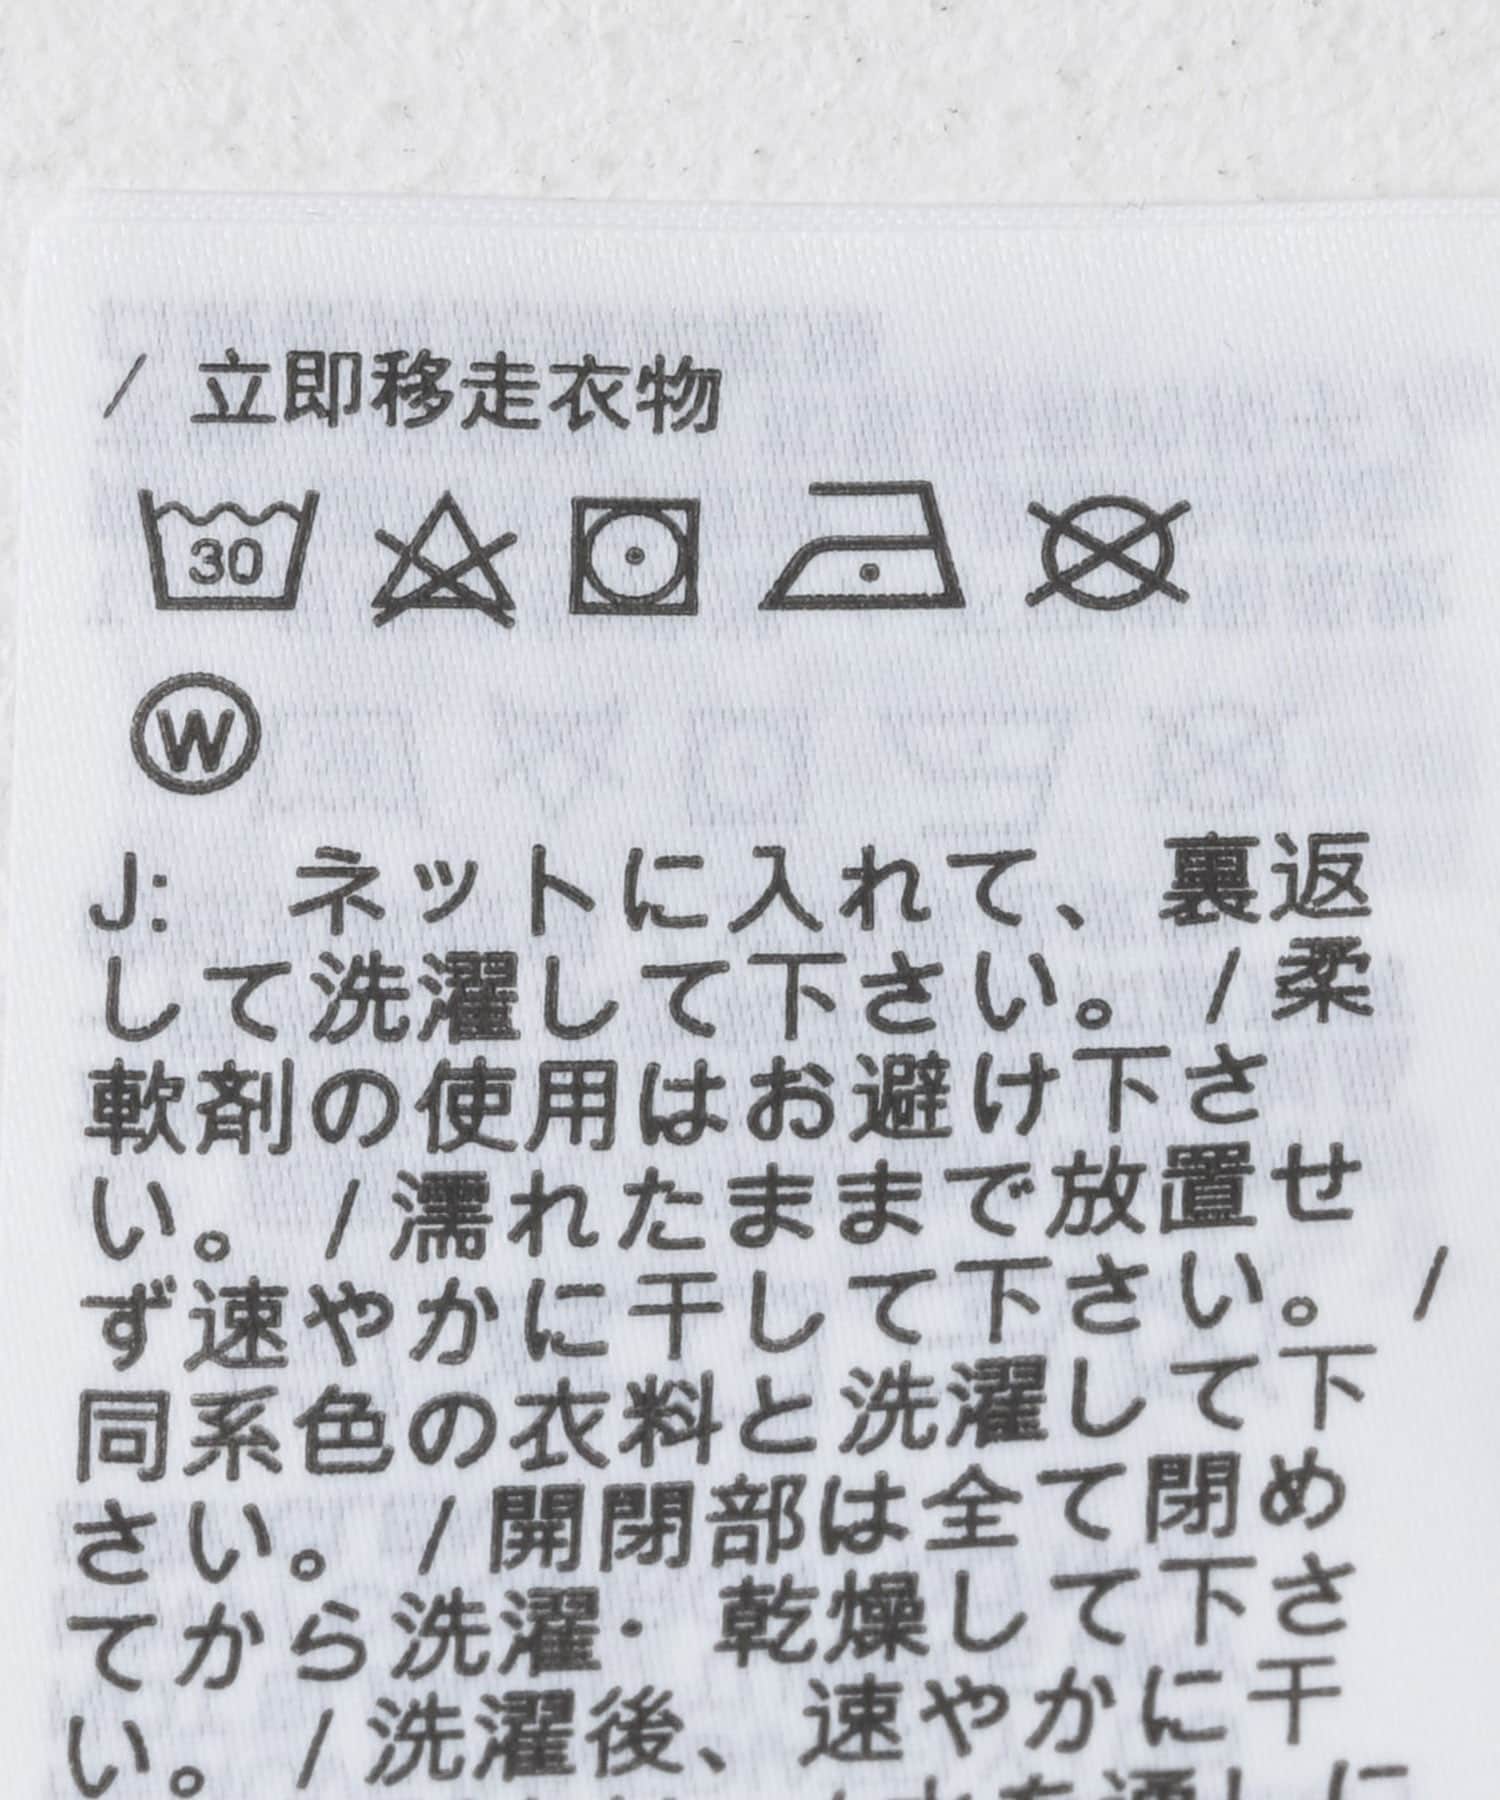 / 立即移走衣物
30
W
J: ネットに入れて、裏返
して洗濯して下さい。 / 柔
軟剤の使用はお避け下さ
い。 / 濡れたままで放置せ
ず速やかに干して下さい。 /
同系色の衣料と洗濯して下
さい。 / 開閉部は全て閉め
てから洗濯・乾燥して下さ
い。 / 洗濯後、速やかに干